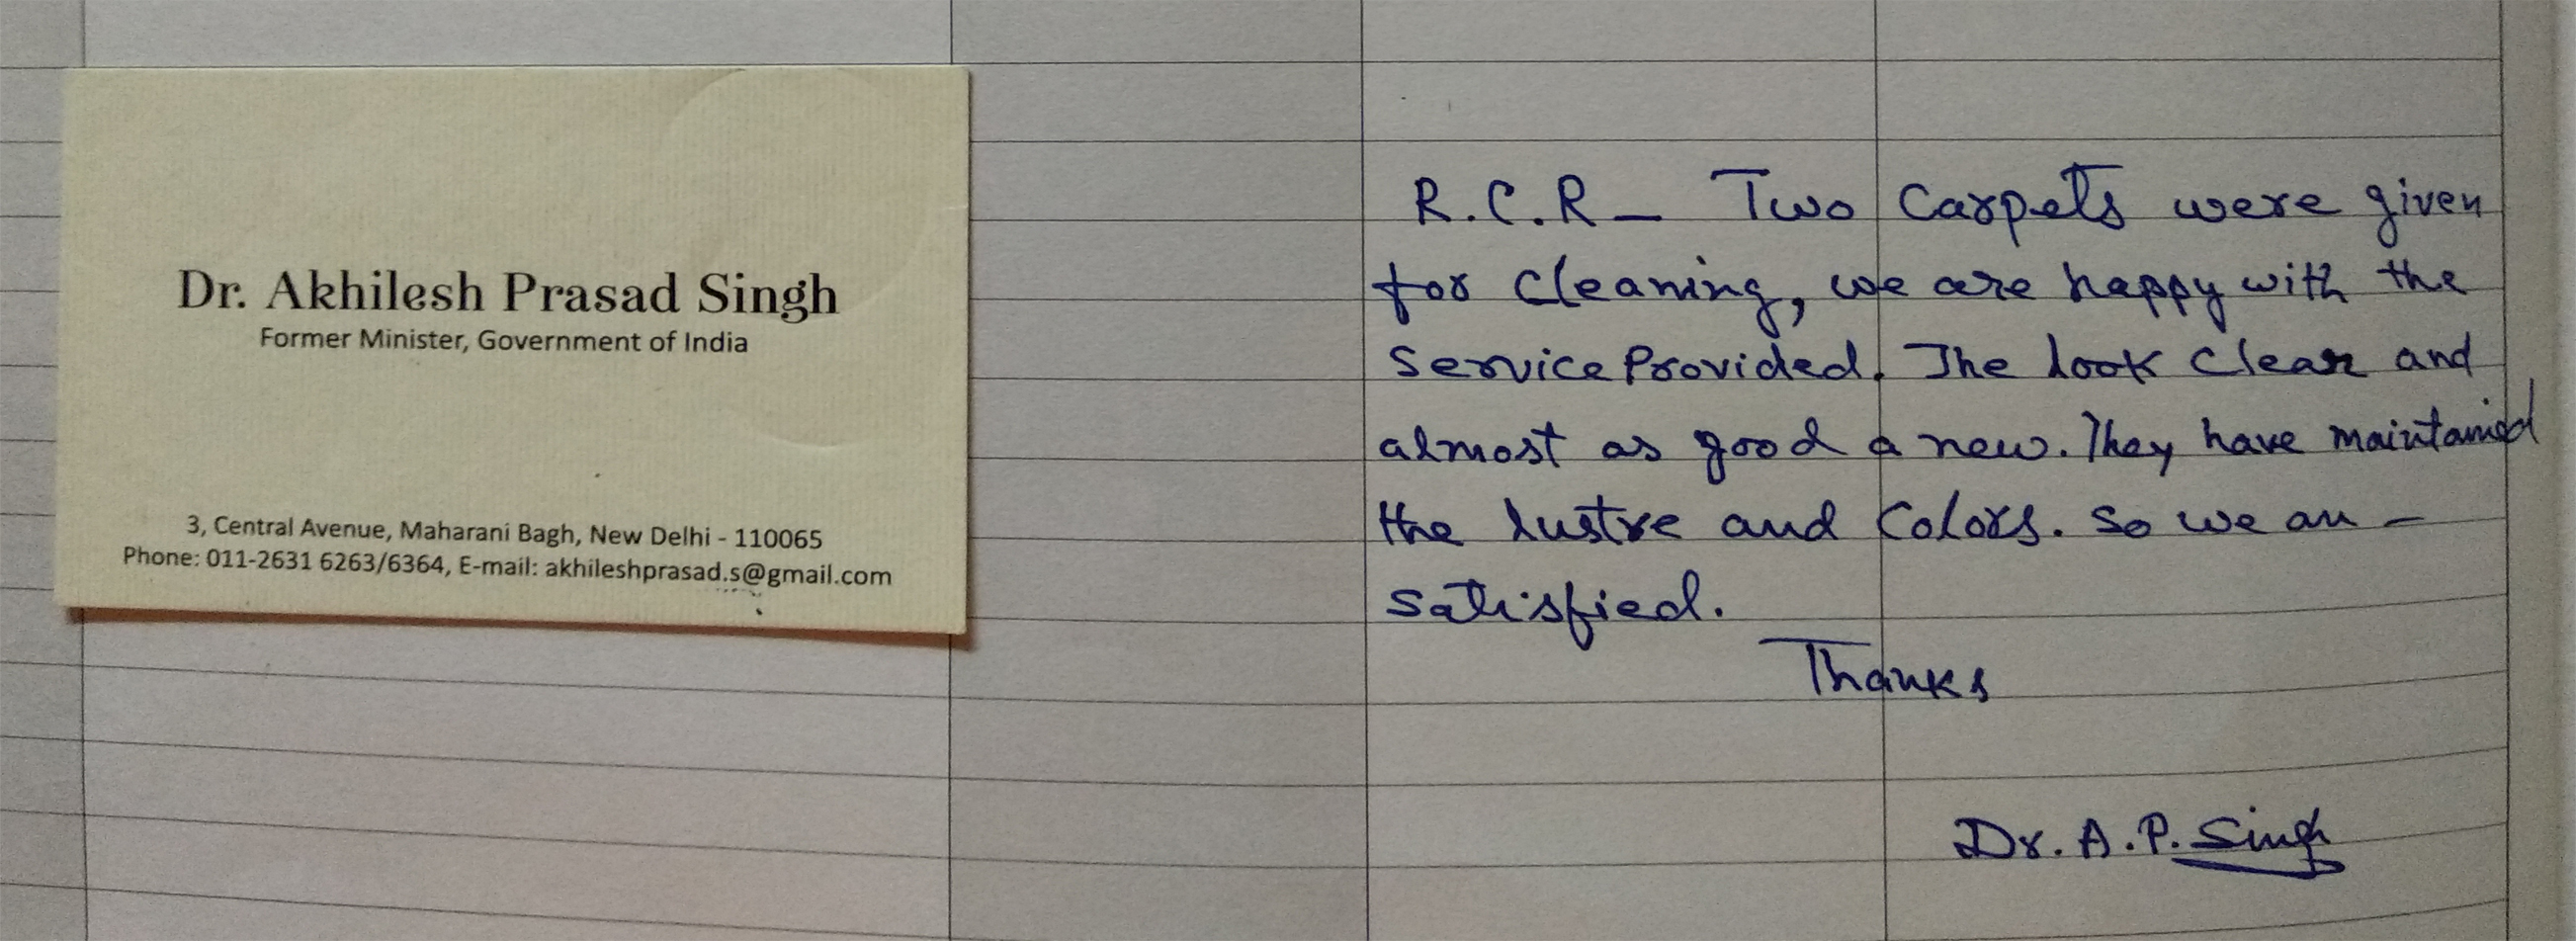 Dr. Akhilesh Prasad Singh
Former Minister, Government of India
3, Central Avenue, Maharani Bagh, New Delhi - 110065
Phone: 011-2631 6263/6364, E-mail: akhileshprasad.s@gmail.com
R.C.R - Two Carpets were given
for cleaning, we are happy with the
Service Provided. The look Clear and
almost as good a new. They have maintained
the lustre and Colors. So we are -
satisfied.
Thanks
Dr. A.P. Singh